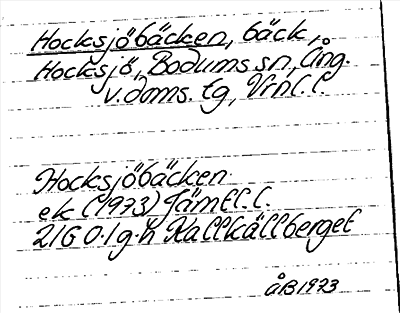 Hocksjöbäcken, bäck,
Hocksjö, Bodums sn, Ång.
v. doms. tg, Vrnl. l.
Hocksjöbäcken
ek (1973) Jämtl. l.
21G 0-1 g-h Kallkällberget
ÅB 1973